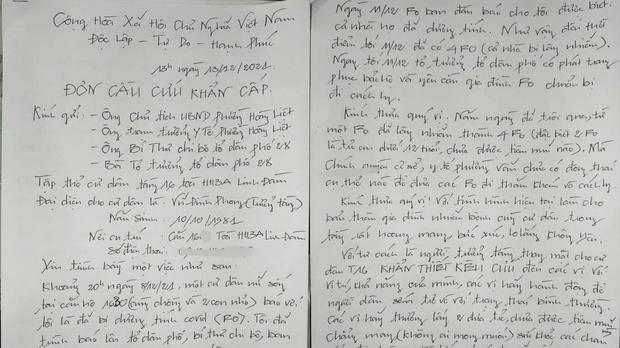 Cộng Hòa Xã Hội Chủ Nghĩa Việt Nam
Độc Lập - Tự Do - Hạnh Phúc
13h ngày 13/12/2021.
ĐƠN CẦU CỨU KHẨN CẤP.
Kính gửi: - Ông Chủ tịch UBND Phường Hoàng Liệt
- Ông trạm trưởng Y Tế Phường Hoàng Liệt
- Ông Bí Thư chi bộ tổ dân phố 28
- Bà Tổ trưởng tổ dân phố 28
Tập thể cư dân tầng 16 tòa HH3A Linh Đàm
Đại diện cho cư dân là: Vũ Đình Phong (Trưởng tầng)
Năm Sinh: 10/10/1981
Nơi cư trú: Căn 16 Tòa HH3A Linh Đàm
Số điện thoại:
Xin trình bày một việc như sau:
Khoảng 20h ngày 8/12/21, một cư dân nữ sống
tại căn hộ (cùng chồng và 2 con nhỏ) báo với
tôi là đã bị dương tính covid (F0). Tôi đã
trình báo lên tổ dân phố, bí thư chi bộ, ban
Ngày 11/12 F0 ban đầu báo cho tôi được biết
cả nhà họ đã dương tính. Như vậy đến thời
điểm tối 11/12 đã có 4 F0 (cả nhà bị lây nhiễm).
Ngay tối 11/12 tổ trưởng tổ dân phố có phát trang
phục bảo hộ và yêu cầu gia đình F0 chuẩn bị
đi cách ly.
Kính thưa quý vị. Năm ngày đã trôi qua, từ
một F0 đã lây nhiễm thành 4 F0 (đặc biệt 2 F0
là trẻ em dưới 12 tuổi, chưa được tiêm mũi nào). Mà
Chính quyền cơ sở, y tế phường vẫn chưa có động thái
cụ thể nào để đưa các F0 đi thăm khám và cách ly.
Kính thưa quý vị! Với tình hình hiện tại làm cho
bản thân gia đình nhiễm bệnh cùng cư dân trong
tầng rất hoang mang bức xúc, lo lắng không yên.
Với tư cách là người trưởng tầng thay mặt cho cư
dân T16 KHẨN THIẾT KÊU CỨU đến các vị. Với
vị trí, khả năng của mình, các vị hãy hành động để
người dân sớm trở về với trạng thái bình thường.
Các vị hãy thương lấy 2 đứa trẻ chưa được tiêm mũi
Chẳng may (không ai mong muốn) sức khỏe các cháu